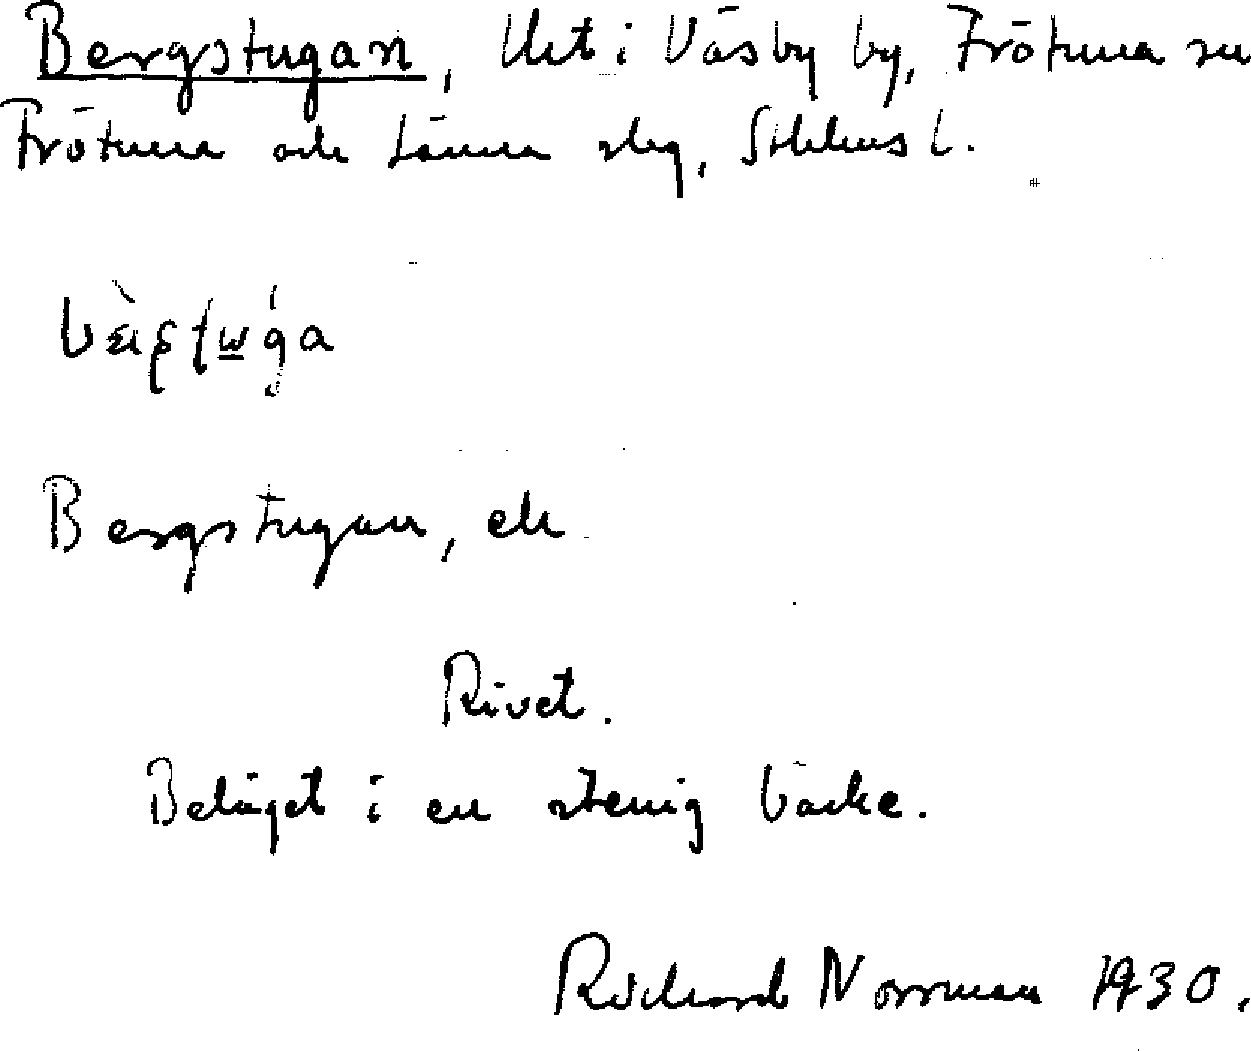 Bergstugan, lht i Väsby by, Frötuna sn
Frötuna och Länna skg, Sthlms l.
Bergstugan, ele
Rivet.
Beläget i en stenig backe.
Richard Norrman 1930.